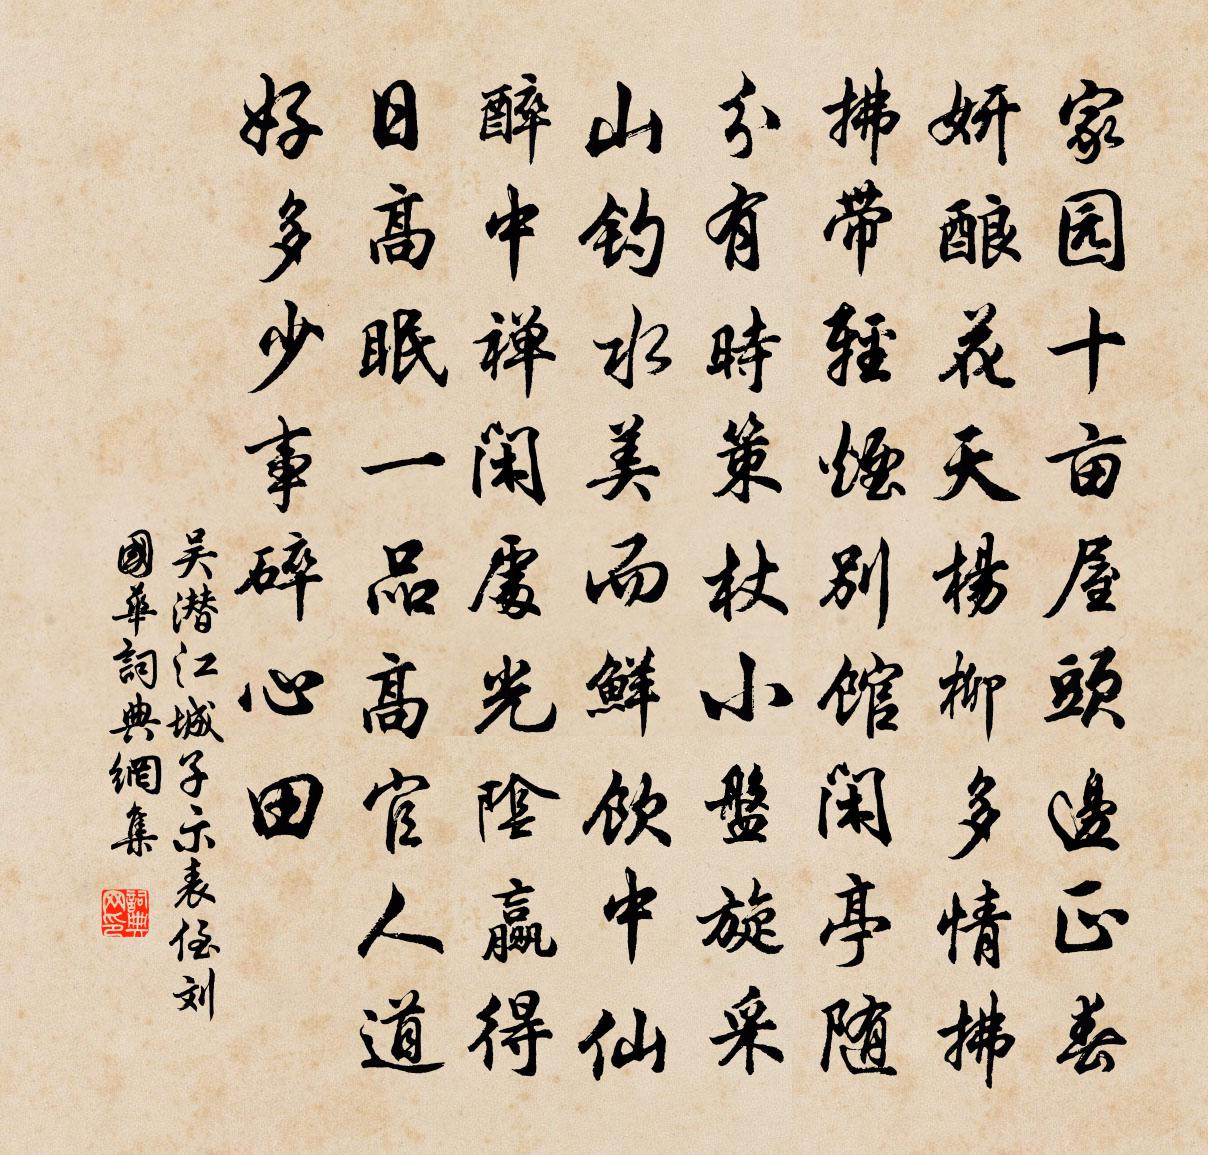 家园十亩屋頭邊正春
妍酿花天楊柳多情拂
拂带輕煙别館闲亭随
分有時策杖小盤旋采
山钓水美而鮮飲中仙
醉中禅闲處光陰赢得
日高眠一品高官人道
好多少事碎心田
吴潜江城子示表侄刘
國華詞典網集
詞典
网印